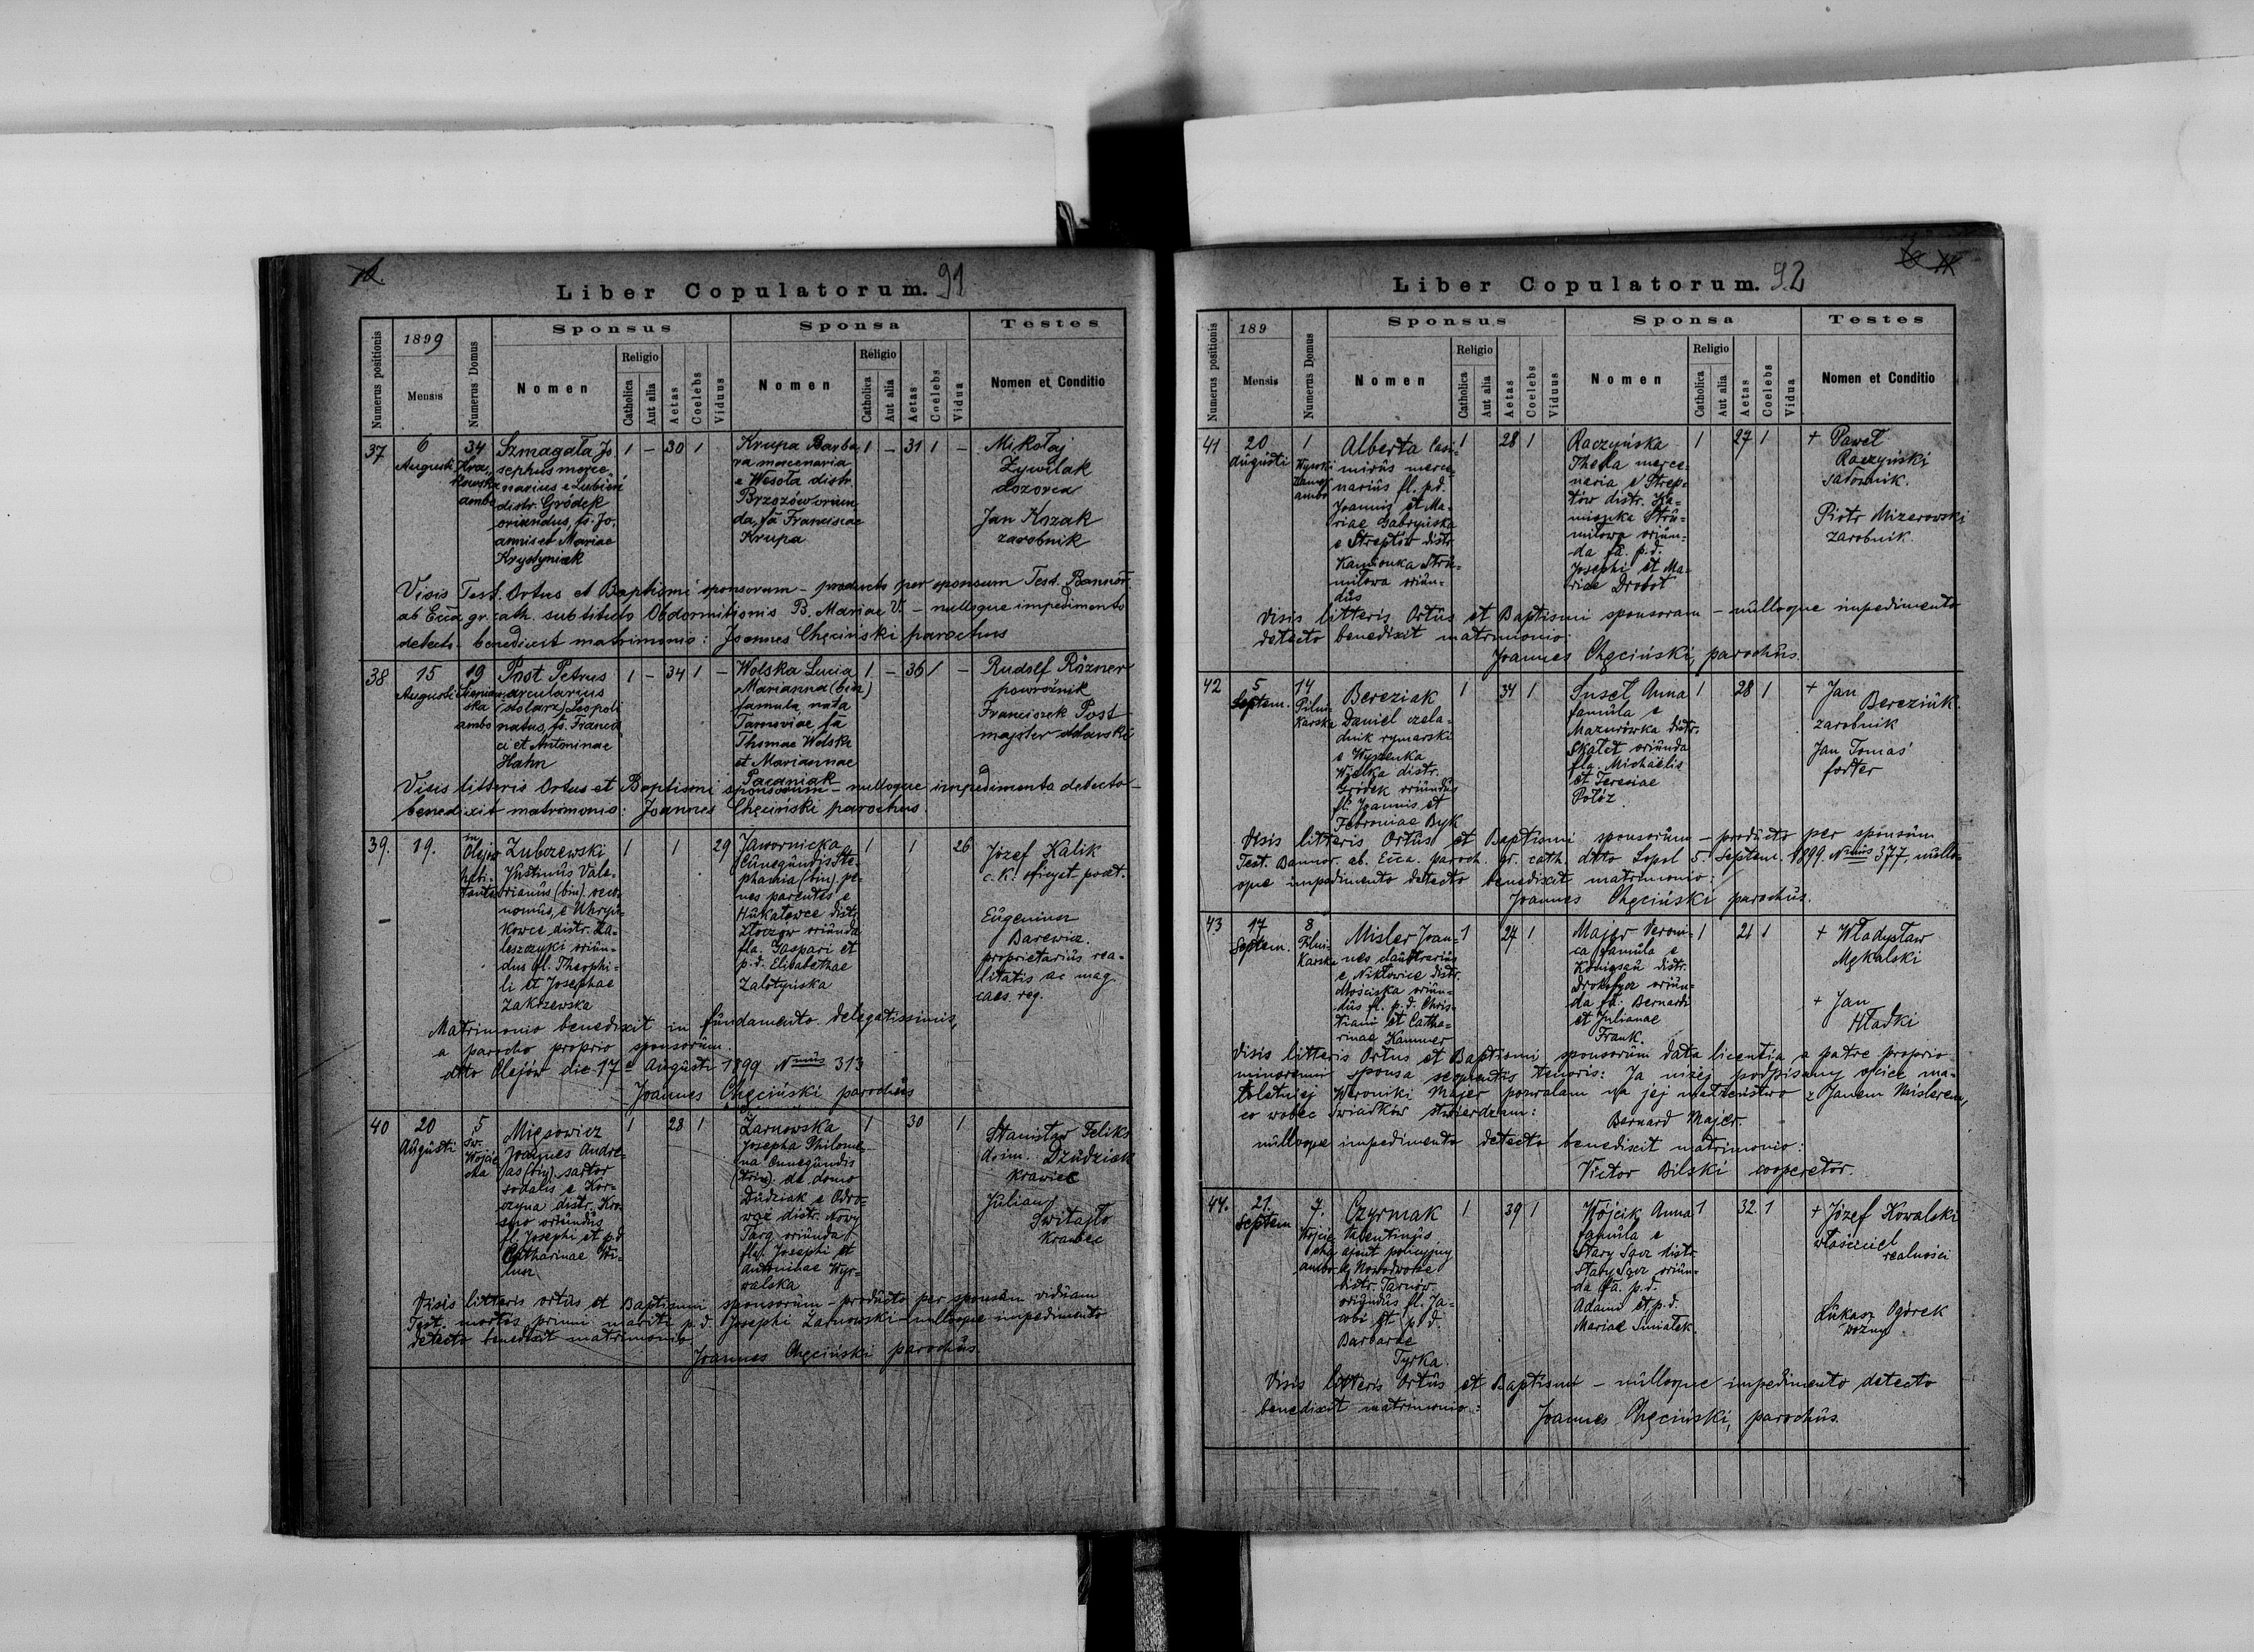 Liber Copulatorum. 91
Numerus positionis
1899
Mensis
Numerus Domus
Sponsus
Nomen
Religio
Catholica
Aut alia
Aetas
Coelebs
Viduus
Sponsa
Nomen
Religio
Catholica
Aut alia
Aetas
Coelebs
Vidua
Testes
Nomen et Conditio
37
6
Augusti
34
ambo
Szmagała Jo
sephus merce
narius e Lubień
distr. Gródek
oriundus, fs. Jo
annis et Mariae
Krystyniak
1 – 30 1
Krupa Barba
ra mercenaria
e Wesoła distr.
Brzozów oriun
da, fa Franciscae
Krupa
1 – 31 1 –
Mikołaj
Żywilak
dozorca
Jan Kozak
zarobnik
Visis Test. Ortus et Baptismi sponsorum – producto per sponsum Test. Bannor.
ab Ecca gr. cath. substituto Obdormitionis B. Mariae V. – nulloque impedimento
detecto – benedixit matrimonio: Joannes Chęciński parochus
38
15
Augusti
19
ambo
Post Petrus
arcularius
(stolarz) Leopoli
natus, fs. Francis
ci et Antoninae
Hahn
1 – 34 1 –
Wolska Lucia
Marianna (bin)
famula, nata
Tarnoviae fa
Thomae Wolski
et Mariannae
Pacaniak
1 – 36 1 –
Rudolf Rözner
powroźnik
Franciszek Post
majster
Visis litteris Ortus et Baptismi sponsorum – nulloque impedimento detecto –
benedixit matrimonio: Joannes Chęciński parochus.
39.
19.
in
Olejów
habi-
tantes
Zubczewski
Justinus Vale-
rianus (bin). oeco-
nomus, e Uhryń-
kowce distr. Za-
leszczyki oriun-
dus fl. Theophi-
li et Josephae
Zakrzewska
1 1 29
Jawornicka
Cunegundis Ste-
phania (bin). pe-
nes parentes e
Hukałowce distr.
Złoczów oriunda
fla. Gaspari et
p. d. Elisabethae
Załotyńska
1 1 26
Józef Kalik
c. k.
Eugeniusz
Barewicz.
proprietarius rea-
litatis ac mag.
caes. reg.
Matrimonio benedixit in fundamento delegatissimis,
a parocho proprio sponsorum.
dtto Olejów die 17 Augusti 1899 Nmus 313
Joannes Chęciński parochus
40
20
Augusti
5
Sw.
Wojcie
cha
Mięsowicz
Joannes Andre-
as (bin) sartor
sodalis e Kor-
czyna distr. Kro-
sno oriundus
fl. Josephi et p.d.
Catharinae Wi-
lusz
1 28 1
Żarnowska
Josepha Philome-
na Cunegundis
(trin). de domo
Dudziak e Odro-
wąż distr. Nowy
Targ oriunda
fla. Josephi et
Antoninae Wyr-
walska
1 30 1
Stanisław Feliks
dwim. Dzudziak
Krawiec
Julian
Switajto
Krawiec
Visis litteris ortus et Baptismi sponsorum – producto per sponsam viduam
Test. mortis primi mariti p.d. Josephi Żarnowski – nulloque impedimento
detecto benedixit matrimonio
Joannes Chęciński parochus.
Liber Copulatorum. 92
Numerus positionis
189
Mensis
Numerus Domus
Sponsus
Nomen
Religio
Catholica
Aut alia
Aetas
Coelebs
Viduus
Sponsa
Nomen
Religio
Catholica
Aut alia
Aetas
Coelebs
Vidua
Testes
Nomen et Conditio
41
20
Augusti
1
Wysoki
Zamek
ambo
Alberta Casi-
mirus merce-
narius fl. p.d.
Joannis et Ma-
riae Gabryńska
e Streptów distr.
Kamionka Stru-
miłowa oriun-
dus
1 28 1
Raczyńska
Thekla merce-
naria e Strep-
tów distr. Ka-
mionka Stru-
miłowa oriun-
da fa. p.d.
Josephi et Ma-
riae Drobot
1 27 1
+ Paweł
Raczyński
Piotr Mizerowski
zarobnik.
Visis litteris Ortus et Baptismi sponsorum – nulloque impedimento
detecto benedixit matrimonio:
Joannes Chęciński, parochus.
42
5
Septem.
14
Pilni-
karska
Bereziak
Daniel czela-
dnik rymarski
e
Wielka distr.
Gródek oriundus
fl. Joannis et
Febroniae Byk
1 34 1
Susel Anna
famula e
Mazurówka distr.
Skałat oriunda
fla. Michaelis
et Teresiae
Połóż.
1 28 1
+ Jan
Bereziuk.
zarobnik
Jan Tomaś
forter
Visis litteris Ortus et Baptismi sponsorum – producto per sponsum
Test. Bannor. ab. Ecca. paroch. gr. cath. dtto Leopl 5. Septem. 1899 Nmus 377 nullo-
que impedimento detecto benedixit matrimonio:
Joannes Chęciński parochus.
43
17
Septem.
8
Pilni-
karska
Misler Joan-
nes claustrarius
e Nikłowice distr.
Mościska oriun-
dus fl. p. d. Chris-
tiani et Catha-
rinae Kammer
1 27 1
Majer Veroni-
ca famula e
Königsau distr.
Drohobycz oriun-
da fa. Bernardi
et Julianae
Frank.
1 21 1
+ Władysław
Mękalski
+ Jan
Hładki
Visis litteris Ortus et Baptismi sponsorum data licentia a patre proprio
minorenni sponsa sequentis tenoris: Ja niżej podpisany ojciec ma-
łoletniej Weroniki Majer pozwalam na jej małżeństwo z Janem Mislerem,
co wobec świadków stwierdzam:
Bernard Majer.
nulloque impedimento detecto benedixit matrimonio:
Victor Bilski cooperator.
44.
21.
Septem
7.
Wojcie
cha
ambo
Czyrmak
Valentinus
ajent policyjny
e Nowodworze
distr. Tarnów
oriundus fl. Ja-
cobi et p. d.
Barbarae
Tyrka.
1 39 1
Wójcik Anna
famula e
Stary Sącz distr.
Stary Sącz oriun-
da fa. p. d.
Adami et p. d.
Mariae Smiałek.
1 32 1
+ Józef Kowalski
właściciel
realności
Łukasz Ogórek
woźny
Visis litteris Ortus et Baptismi – nulloque impedimento detecto
benedixit matrimonio:
Joannes Chęciński, parochus.